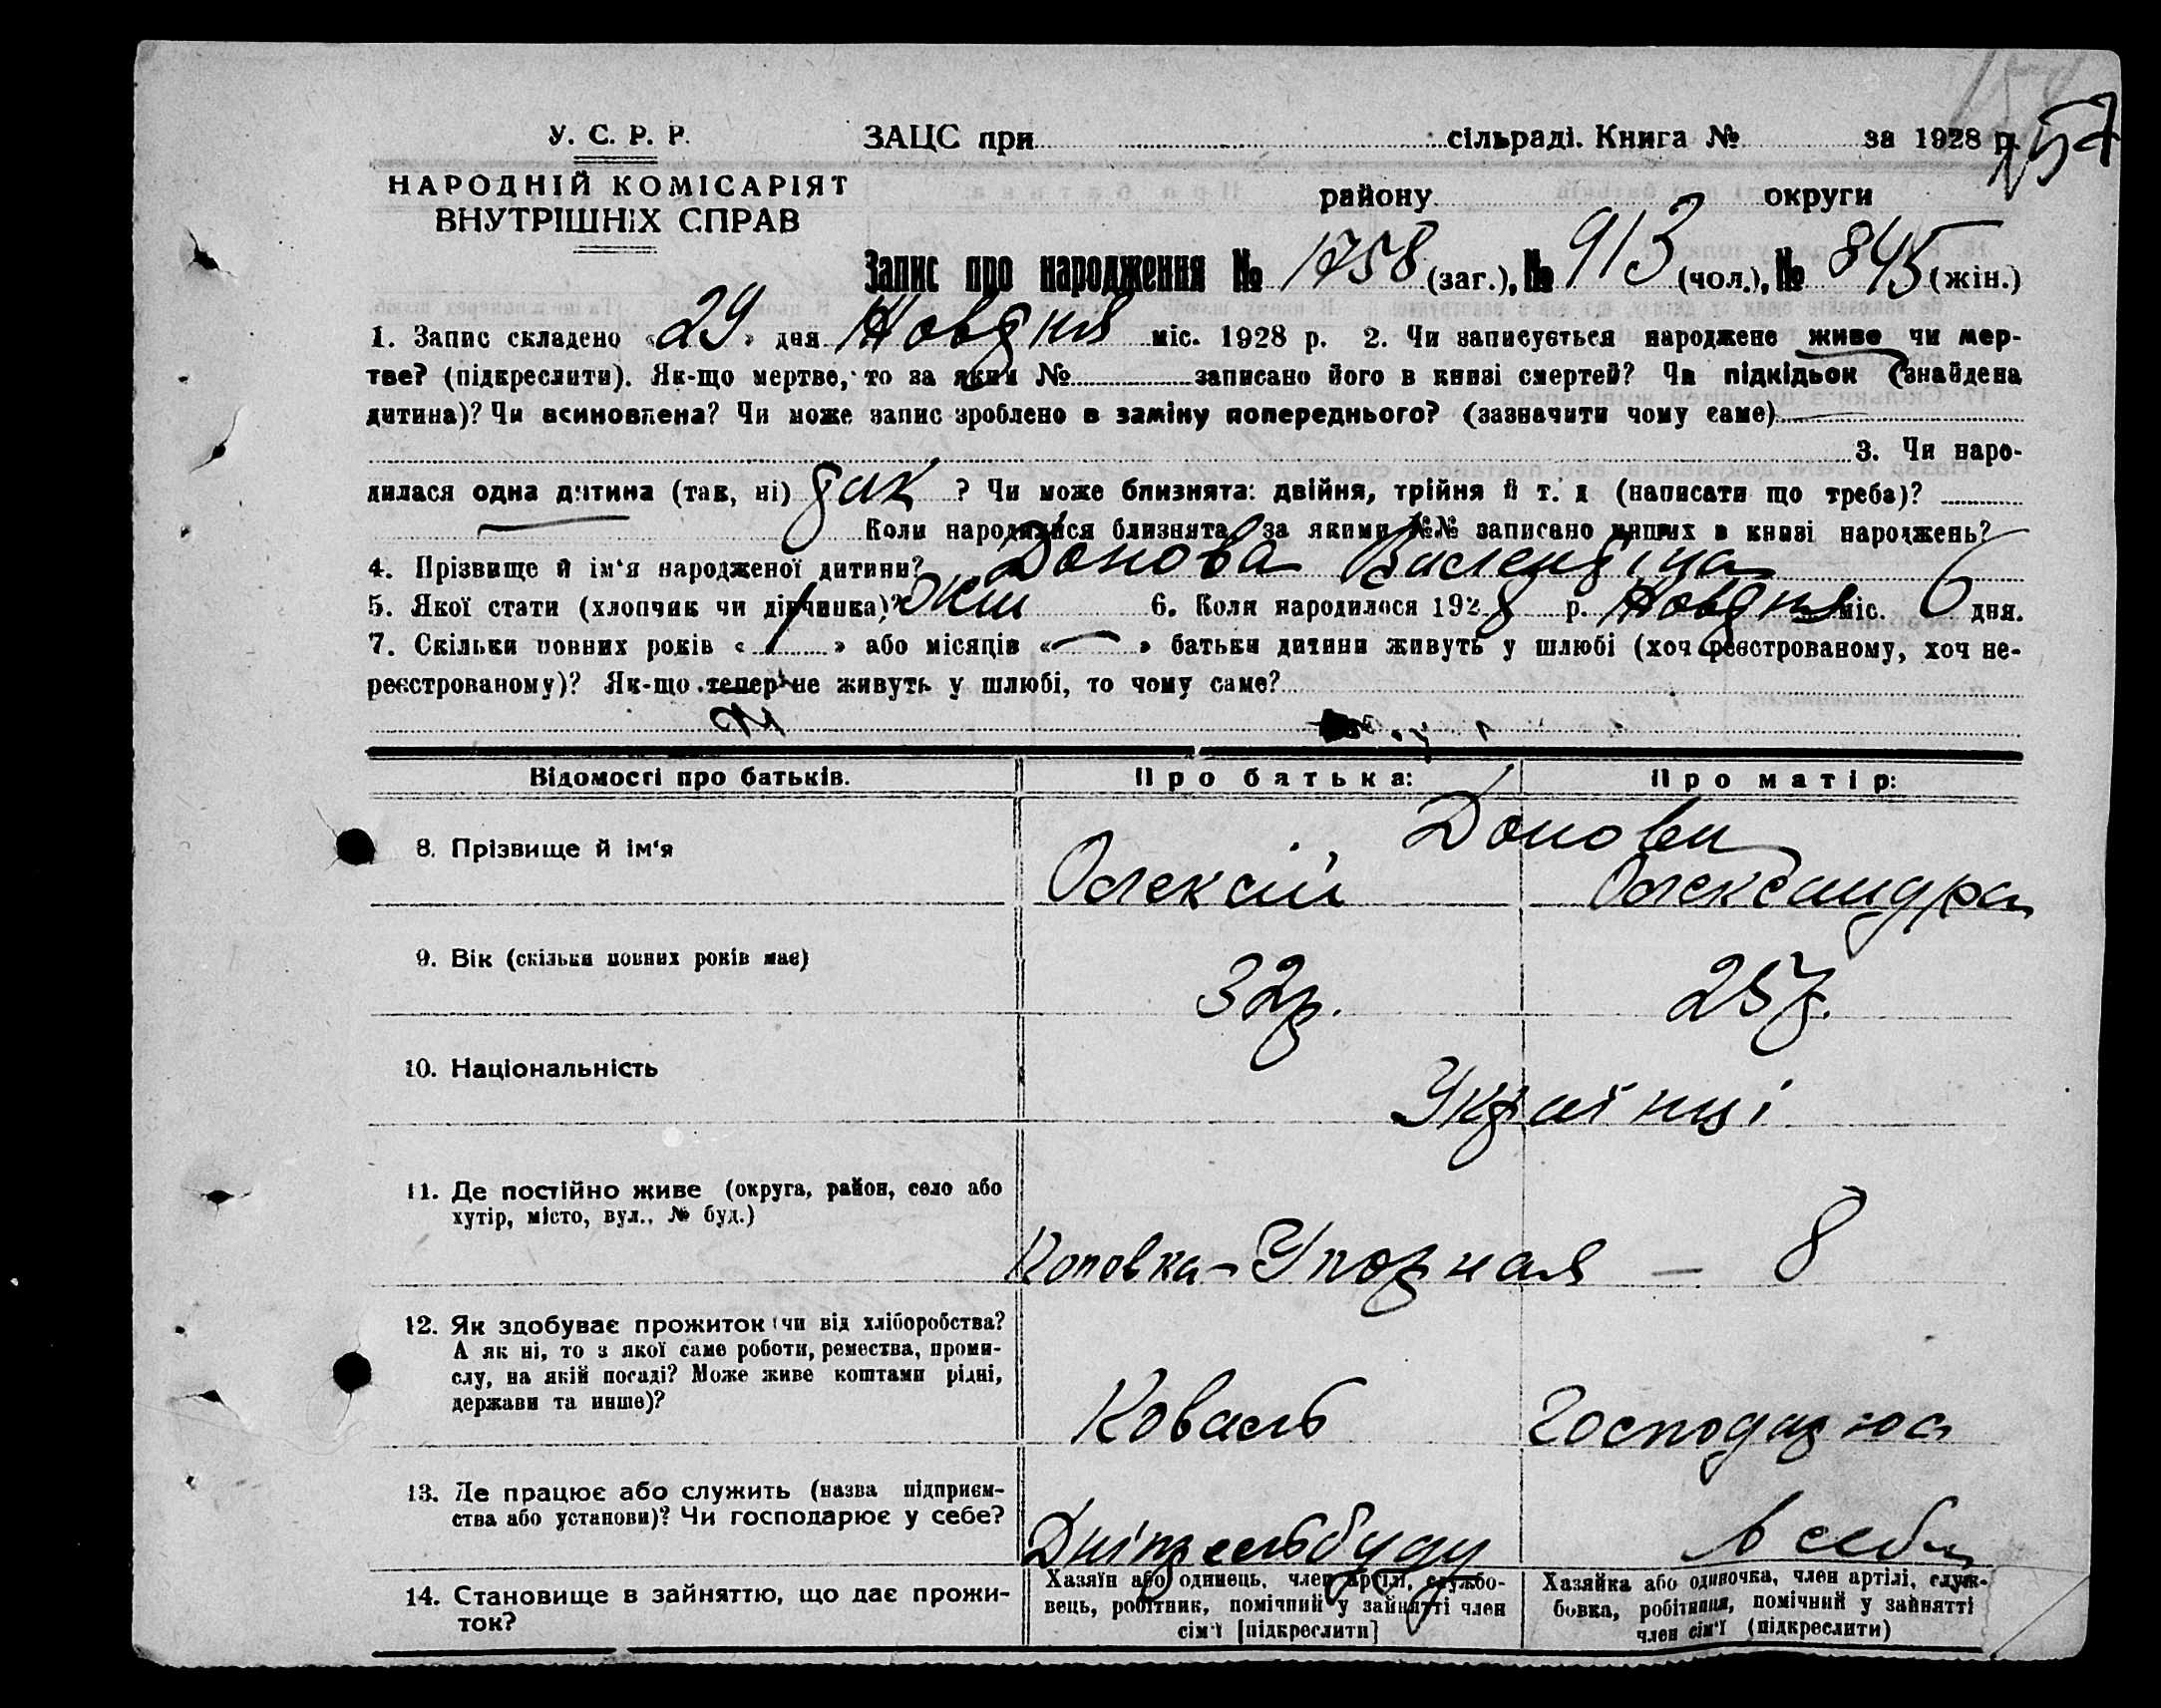 157
У. С. Р. Р. ЗАЦС при сільраді. Книга № за 1928 р.
НАРОДНІЙ КОМІСАРІЯТ
ВНУТРІШНІХ СПРАВ
району округи
Запис про народження № 1758 (заг.), № 913 (чол.), № 845 (жін.)
1. Запис складено «29» дня Новдня міс. 1928 р. 2. Чи записується народжене живе чи мер-
тве? (підкреслити). Як-що мертве, то за яким № записано його в книзі смертей? Чи підкідьок (знайдена
дитина)? Чи всиновлена? Чи може запис зроблено в заміну попереднього? (зазначити чому саме)
3. Чи наро-
дилася одна дитина (так, ні) так ? Чи може близнята: двійня, трійня й т. д (написати що треба)?
Коли народилися близнята, за якими №№ записано инших в книзі народжень?
4. Прізвище й ім'я народженої дитини? Донова Валентіна
5. Якої стати (хлопчик чи дівчинка)? жін 6. Коли народилося 1928 р. Новдня міс. 6 дня.
7. Скільки повних років « » або місяців «—» батьки дитини живуть у шлюбі (хоч реєстрованому, хоч не-
реєстрованому)? Як-що тепер не живуть у шлюбі, то чому саме?
Відомості про батьків. Про батька: Про матір:
8. Прізвище й ім'я Донови
Олексій Олександра
9. Вік (скільки повних років має) 32р. 25р.
10. Національність Українці
11. Де постійно живе (округа, район, село або
хутір, місто, вул., № буд.)
Упорная — 8
12. Як здобуває прожиток (чи від хліборобства?
А як ні, то з якої саме роботи, ремества, проми-
слу, на якій посаді? Може живе коштами рідні,
держави та инше)?
Коваль Господарює
13. Де працює або служить (назва підприєм-
ства або установи)? Чи господарює у себе?
Дніпрельбуду в себе
14. Становище в зайняттю, що дає прожи-
ток?
Хазяїн або одинець, член артілі, службо-
вець, робітник, помічний у зайнятті член
сім'ї [підкреслити]
Хазяйка або одиночка, член артілі, служ-
бовка, робітниця, помічний у зайнятті
член сім'ї (підкреслити)